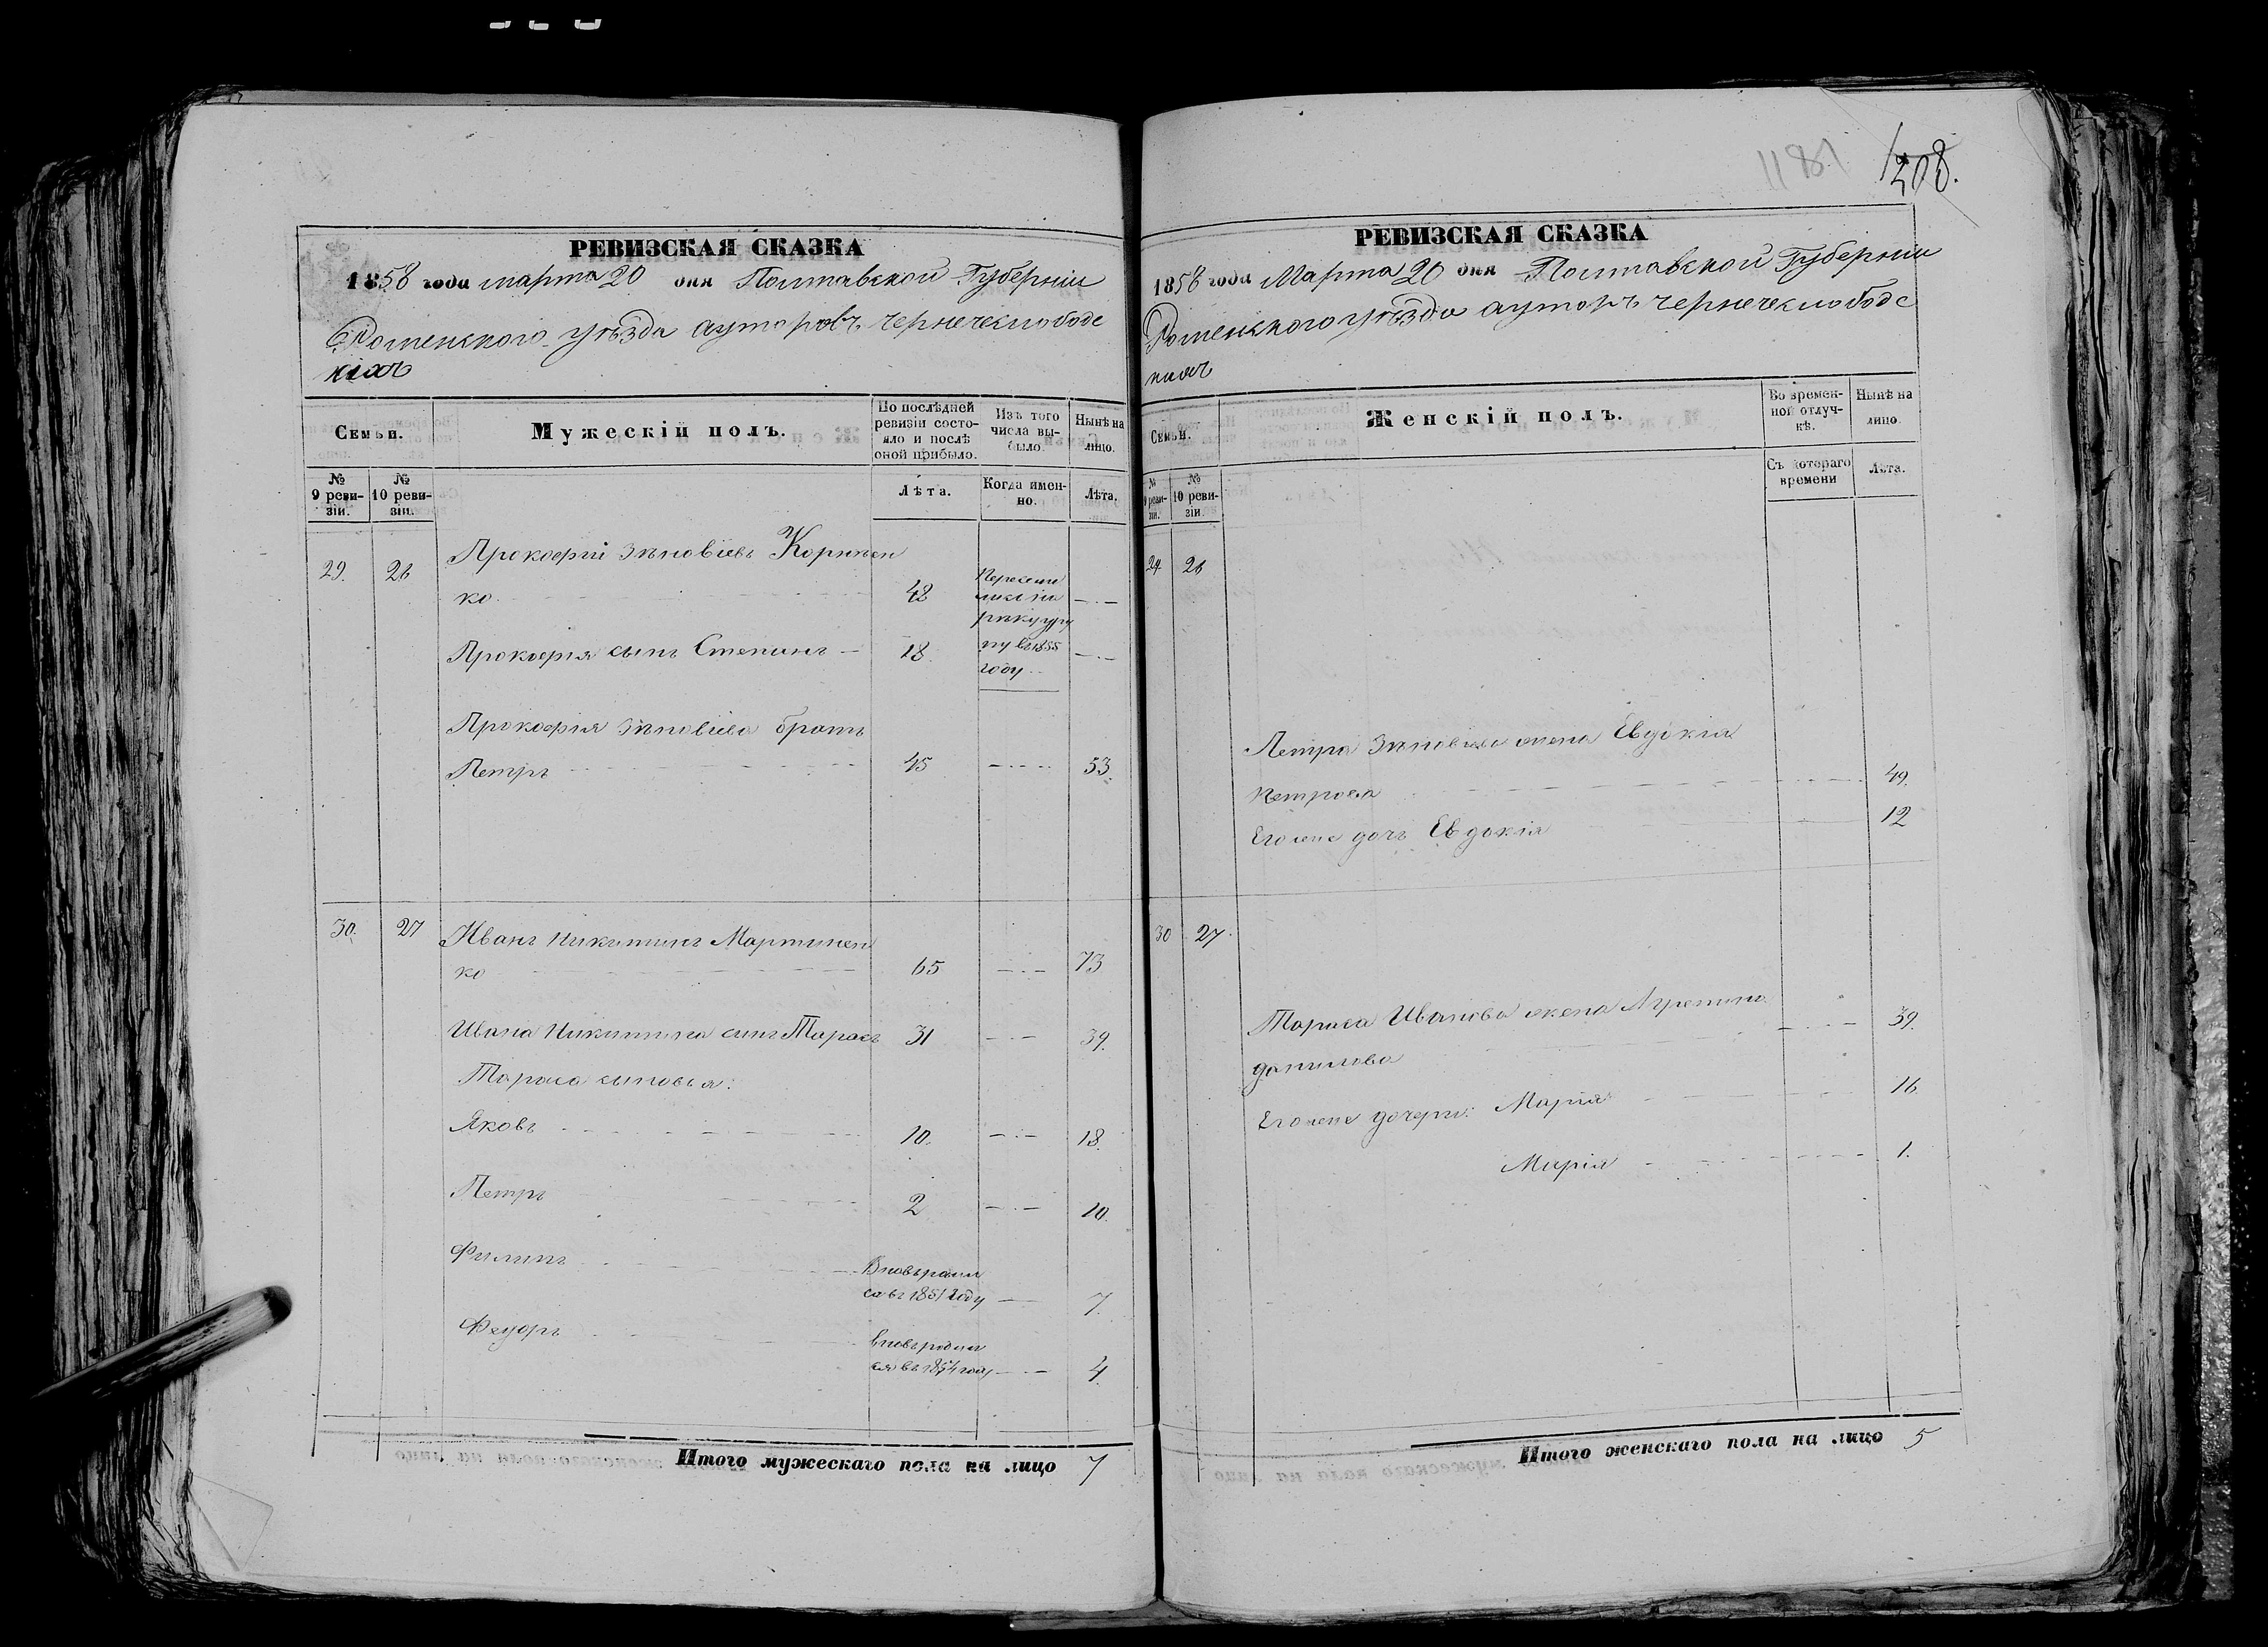 1181 1208.
РЕВИЗСКАЯ СКАЗКА
1858 года марта 20 дня Полтавской Губерніи
Роменского уѣзда хуторовъ Чернечеслободс
кихъ
Семьи.
Мужескій полъ.
По послѣдней ревизіи состояло и послѣ оной прибыло.
Изъ того числа выбыло.
Нынѣ на лицо.
№ 9 ревизіи.
№ 10 ревизіи.
Лѣта.
Когда именно.
Лѣта.
29. 26 Прокофій Зѣновіевъ Коринен
ко 48
Прокофія сынъ Степанъ 18.
году
Прокофія Зѣновіева братъ
Петръ 45 53.
30. 27 Иванъ Никитинъ Мартинен
ко 65 73
Ивана Никитина синъ Тарасъ 31 39.
Тараса сыновья:
Яковъ 10. 18.
Петръ 2 10.
Филипъ Вновь родил
ся въ 1851 году 7.
Федоръ вновь родил
ся въ 1854 году 4.
Итого мужескаго пола на лицо 7
РЕВИЗСКАЯ СКАЗКА
1858 года Марта 20 дня Полтавской Губерніи
Роменского уѣзда хуторъ Чернечеслободс
кихъ
Семьи.
Женскій полъ.
Во временной отлучкѣ.
Нынѣ на лицо.
№ 9 ревизіи.
№ 10 ревизіи.
Съ котораго времени
Лѣта.
29 26
Петра Зѣновіева жена Евдокія
Петрова 49.
Его же дочь Евдокія 12
30 27.
Тараса Иванова жена
данилова 39.
Его же дочери: Марія 16.
Марія 1.
Итого женскаго пола на лицо 5